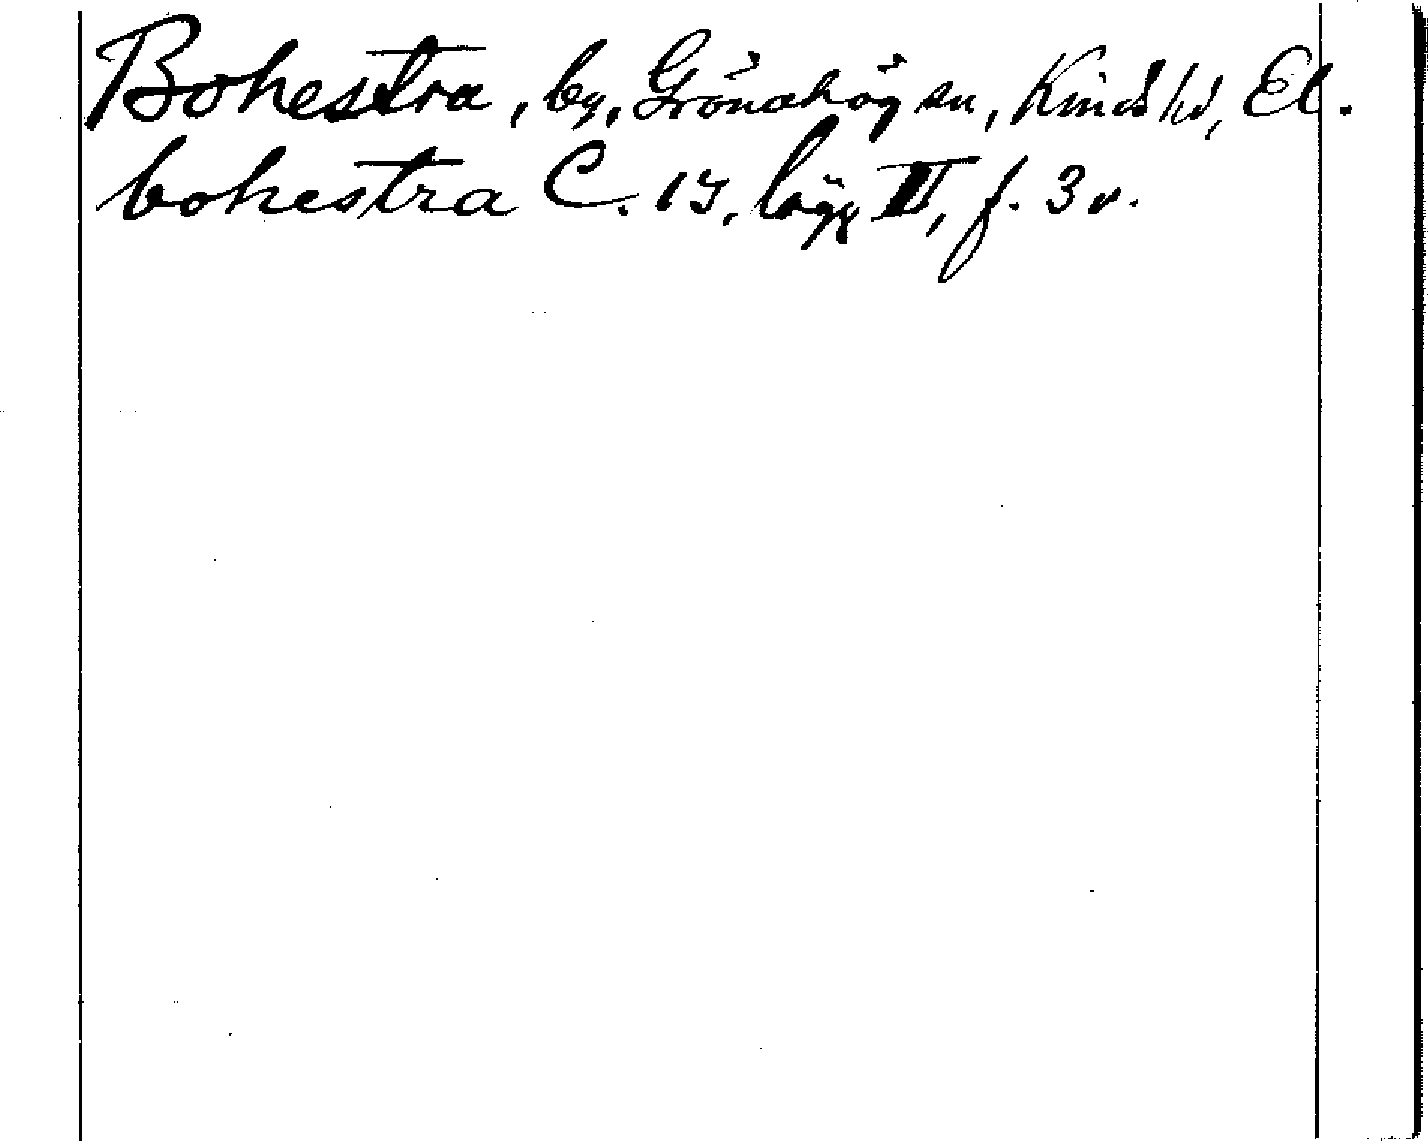 Bohestra, by, Grönahög sn, Kinds hd, El.
bohestra C. 15, lägg III, f. 3 v.